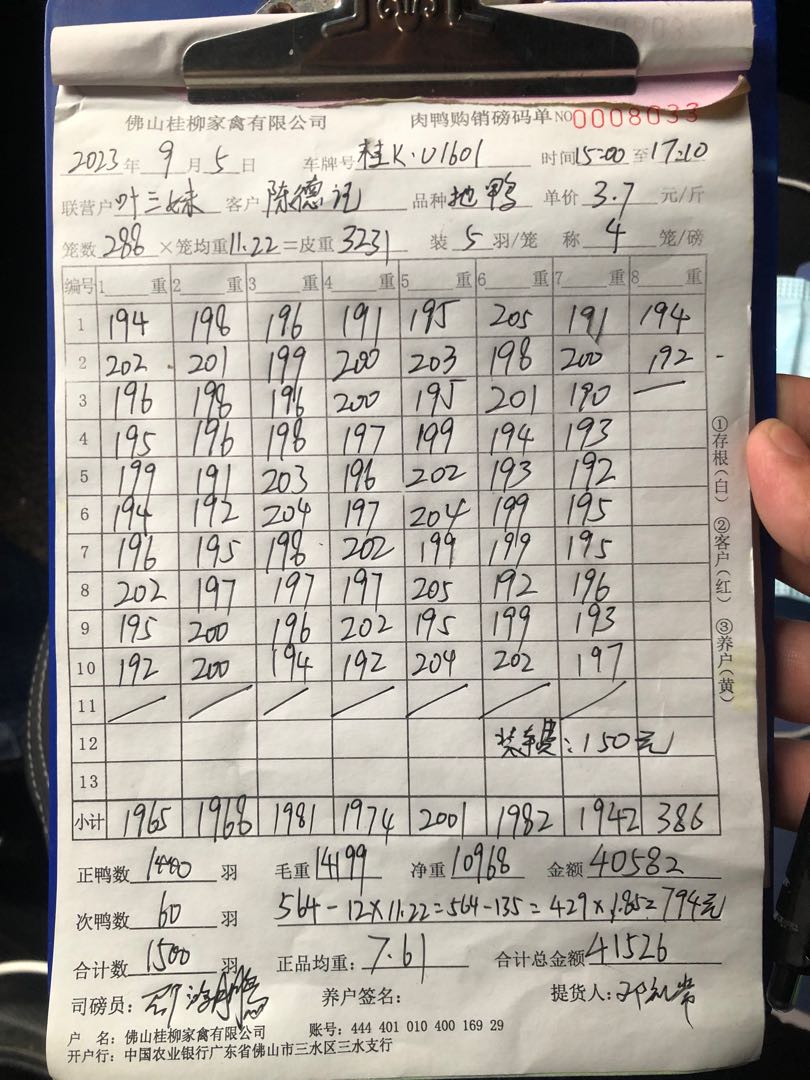 佛山桂柳家禽有限公司 肉鸭购销磅码单 NO 0008033
2023年 9月 5日 车牌号 桂K·U1601 时间 15:00 至 17:10
联营户 叶三妹 客户 陈德记 品种 地鸭 单价 3.7 元/斤
笼数 288 × 笼均重 11.22 = 皮重 3231 装 5 羽/笼 称 4 笼/磅
编号 1 重 2 重 3 重 4 重 5 重 6 重 7 重 8 重
1 194 198 196 191 195 205 191 194
2 202 201 199 200 203 198 200 192
3 196 198 196 200 195 201 190 —
4 195 196 198 197 199 194 193
5 199 191 203 196 202 193 192
6 194 192 204 197 204 199 195
7 196 195 198 202 199 199 195
8 202 197 197 197 205 192 196
9 195 200 196 202 195 199 193
10 192 200 194 192 204 202 197
11 / / / / / / /
12 装车费:150元
13
小计 1965 1968 1981 1974 2001 1982 1942 386
正鸭数 1440 羽 毛重 14199 净重 10968 金额 40582
次鸭数 60 羽 564-12×11.22=564-135=429×1.85=794元
合计数 1500 羽 正品均重: 7.61 合计总金额 41526
司磅员: 养户签名: 提货人:
户 名: 佛山桂柳家禽有限公司 账号: 444 401 010 400 169 29
开户行: 中国农业银行广东省佛山市三水区三水支行
①存根(白) ②客户(红) ③养户(黄)